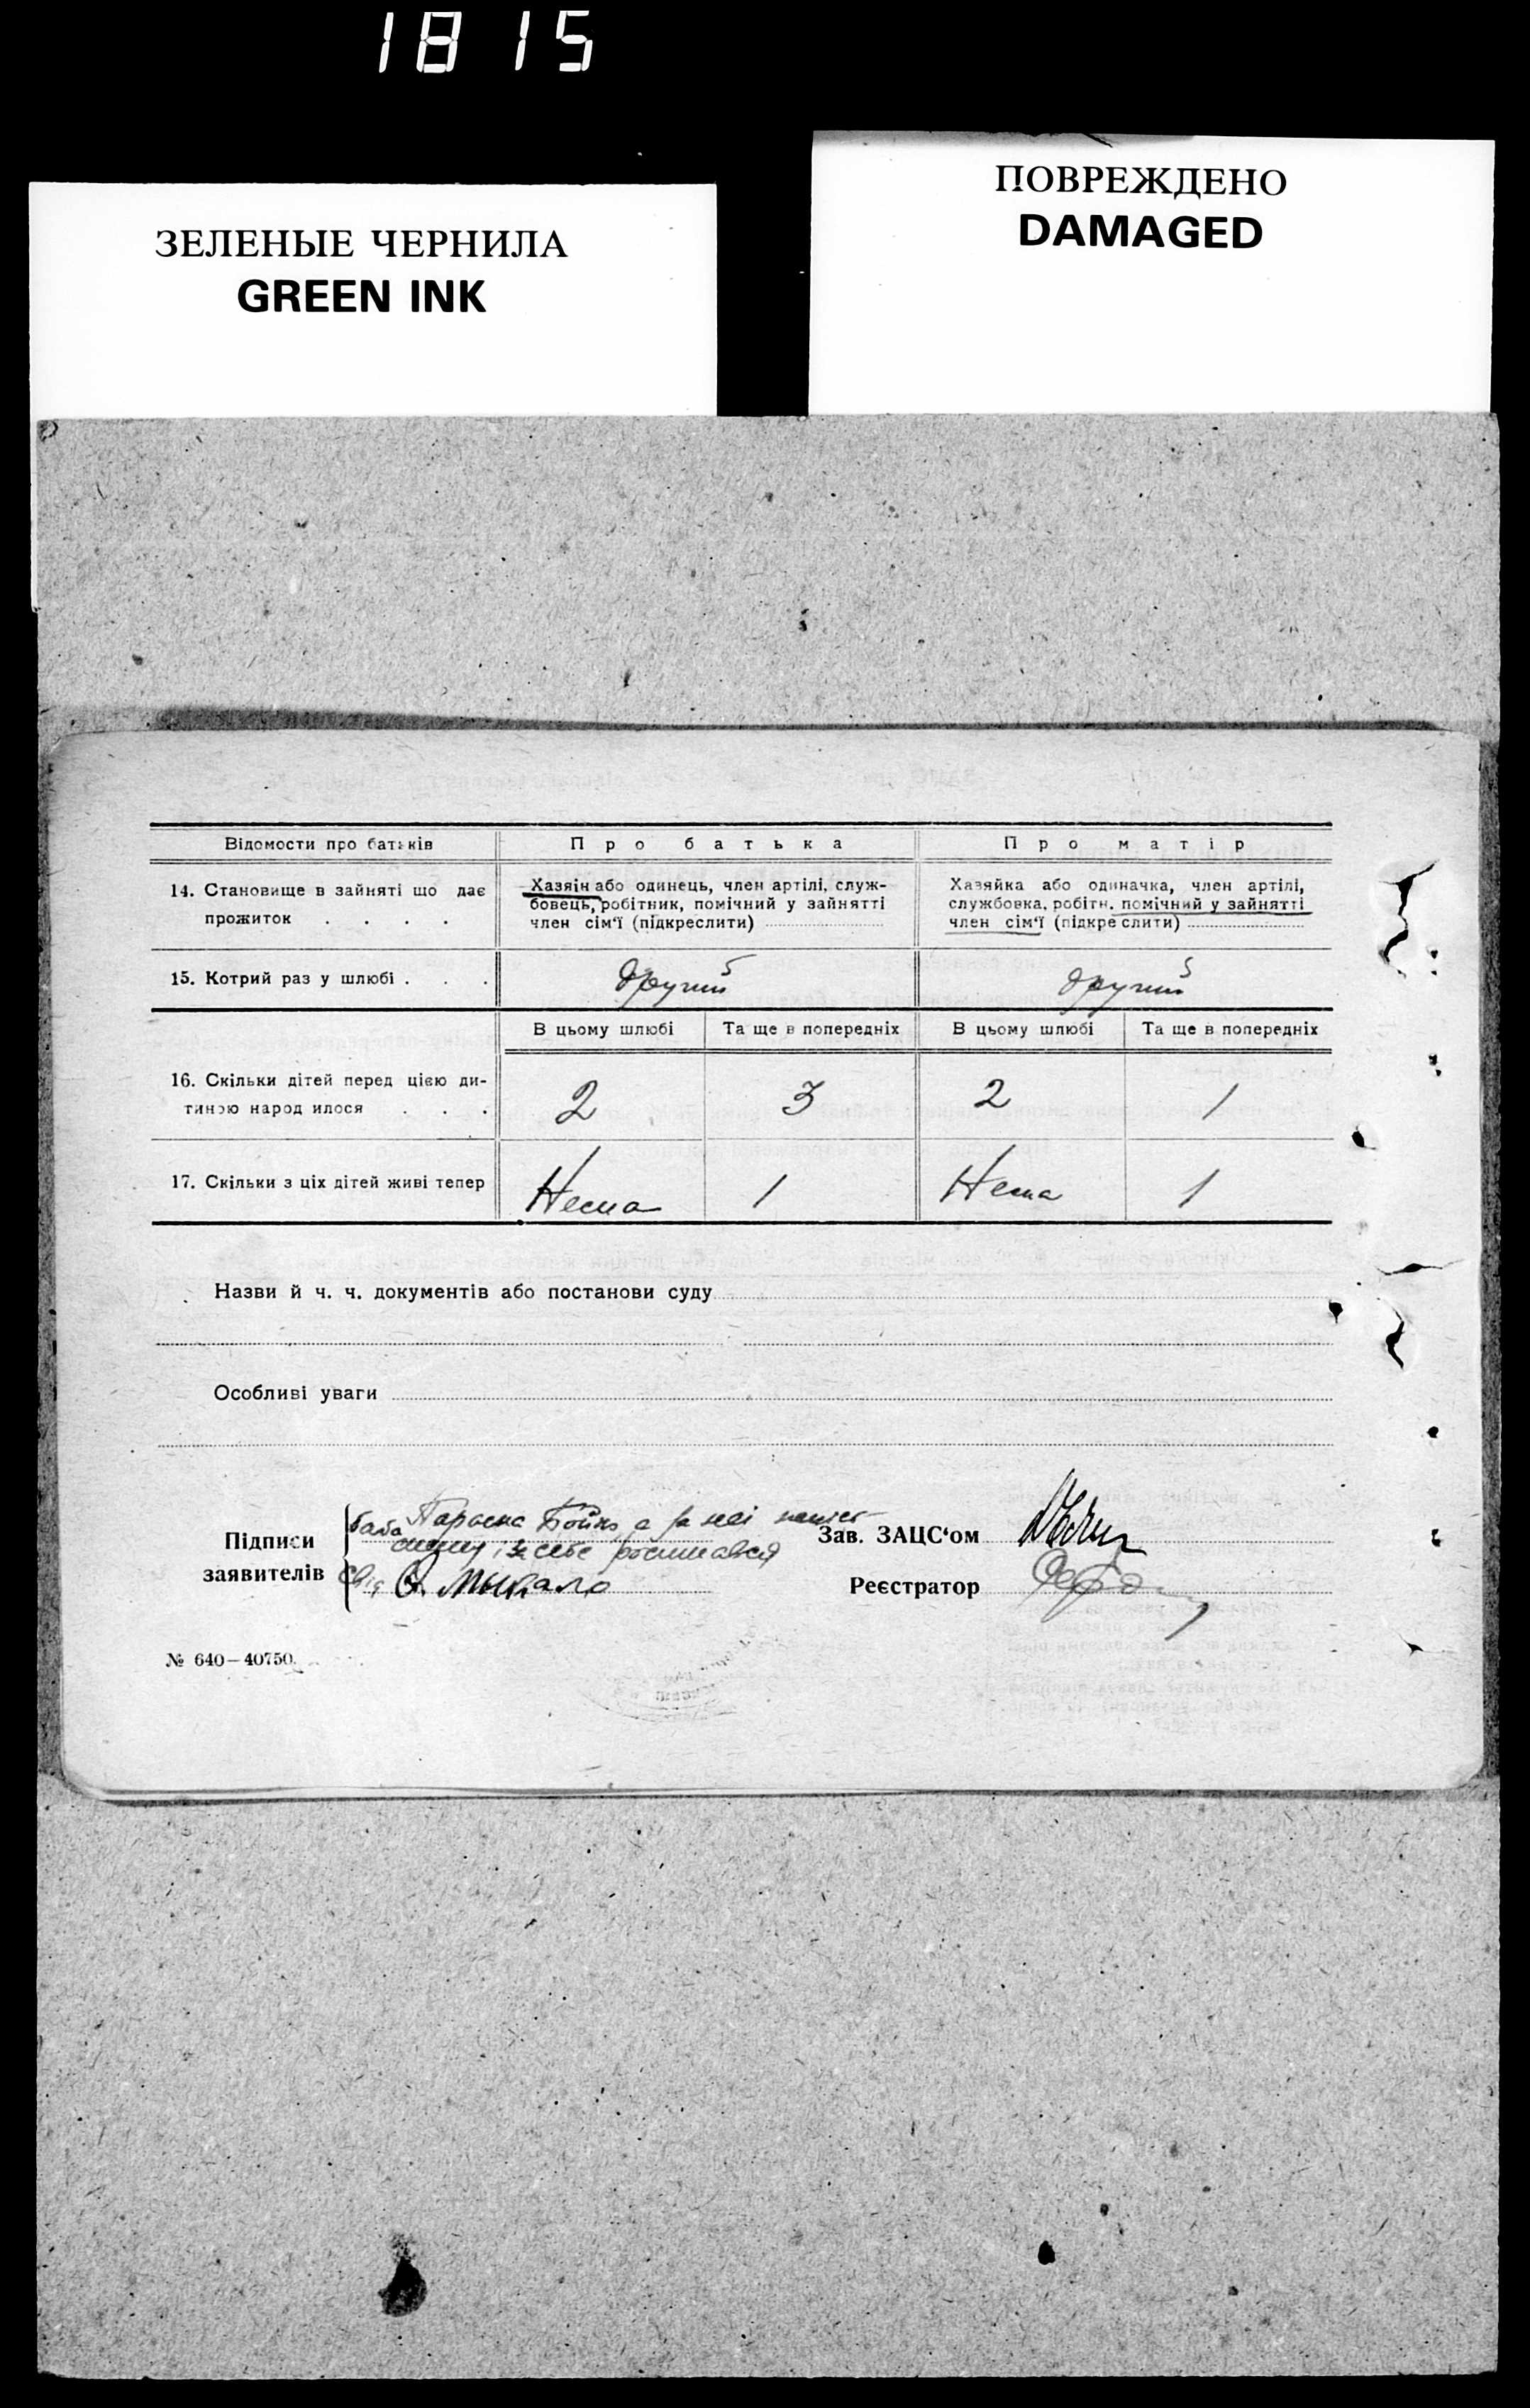 1815
ПОВРЕЖДЕНО
DAMAGED
ЗЕЛЕНЫЕ ЧЕРНИЛА
GREEN INK
Відомости про батьків
Про батька
Про матір
14. Становище в зайняті що дає
прожиток . . . .
Хазяін або одинець, член артілі, служ-
бовець, робітник, помічний у зайнятті
член сім'ї (підкреслити)
Хазяйка або одиначка, член артілі,
службовка, робітн. помічний у зайнятті
член сім'ї (підкреслити)
15. Котрий раз у шлюбі . . .
другий
другий
В цьому шлюбі
Та ще в попередніх
В цьому шлюбі
Та ще в попередніх
16. Скільки дітей перед цією ди-
тиною народилося . . .
2
3
2
1
17. Скільки з ціх дітей живі тепер
Нема
1
Нема
1
Назви й ч. ч. документів або постанови суду
Особливі уваги
Підписи
заявителів
баба Параска Бойко, а за неї
і за себе росписався
Зав. ЗАЦС'ом
Реєстратор
№ 640—40750.